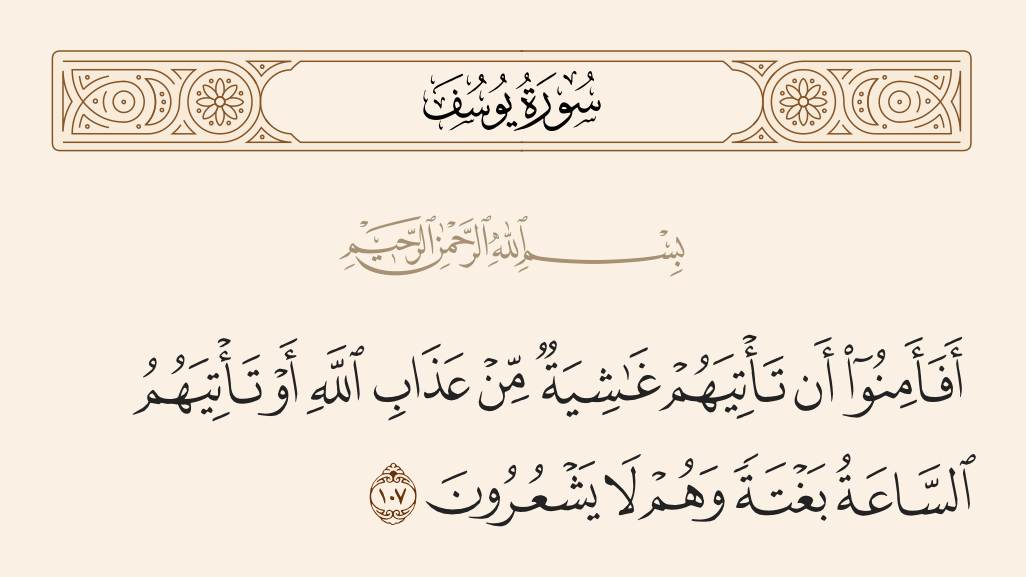 سُورَةُ يُوسُفَ
بِسْمِ ٱللَّهِ ٱلرَّحْمَٰنِ ٱلرَّحِيمِ
أَفَأَمِنُوٓا۟ أَن تَأْتِيَهُمْ غَٰشِيَةٌ مِّنْ عَذَابِ ٱللَّهِ أَوْ تَأْتِيَهُمُ
ٱلسَّاعَةُ بَغْتَةً وَهُمْ لَا يَشْعُرُونَ ١٠٧